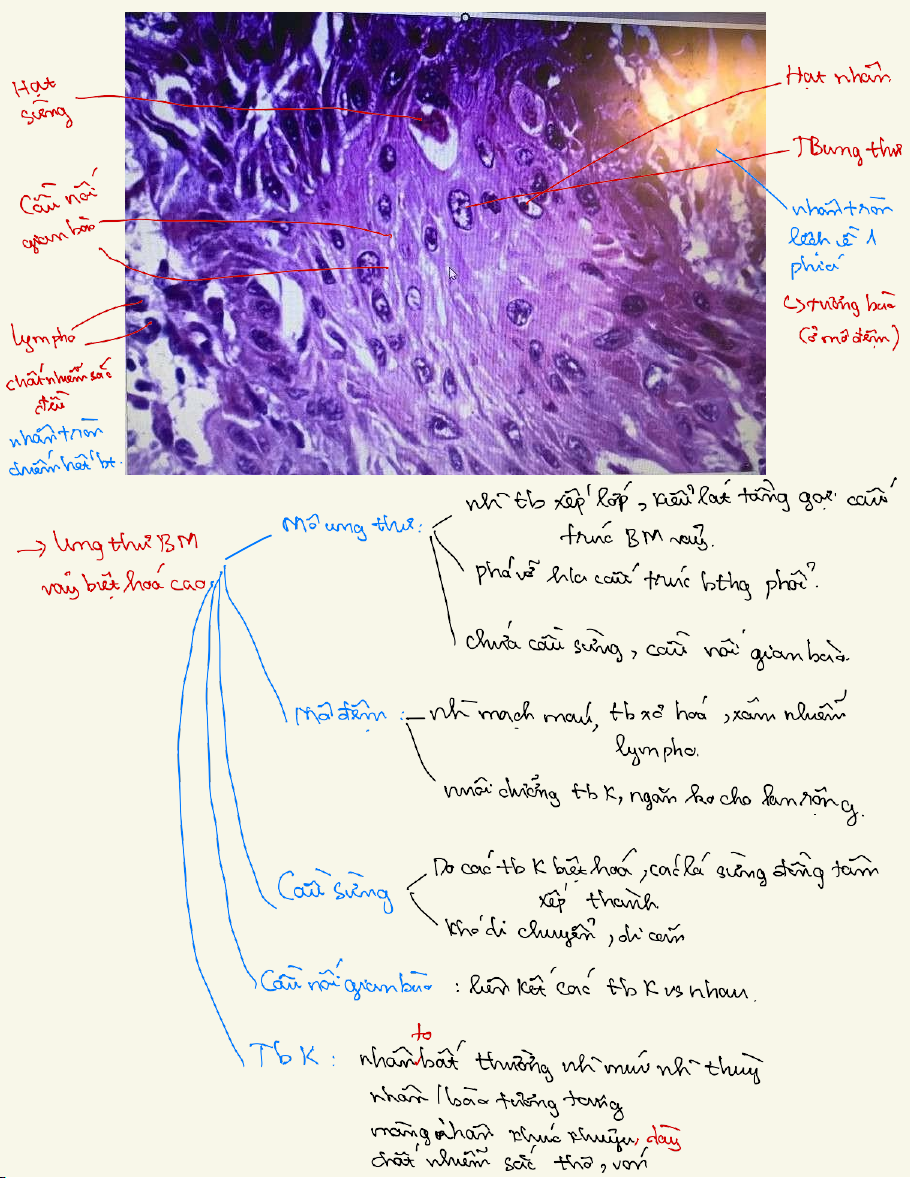 Hạt
sừng
Cầu nối
gian bào
lympho
chất nhiễm sắc
đều
nhân tròn
chiếm hết bt.
Hạt nhân
TB ung thư
nhân tròn
lệch về 1
phía
↳ tương bào
(ở mô đệm)
→ Ung thư BM
vảy biệt hoá cao
Mô ung thư:
nh` tb xếp lớp, kiểu lát tầng gợi cấu
trúc BM vảy.
phá vỡ hết cấu trúc bthg phổi.
chứa cầu sừng, cầu nối gian bào.
Mô đệm:
nh` mạch máu, tb xơ hoá, xâm nhiễm
lympho.
nuôi dưỡng tb K, ngăn ko cho lan rộng.
Cầu sừng
Do các tb K biệt hoá, các lá sừng đồng tâm
xếp thành
khó di chuyển, di căn
Cầu nối gian bào : liên kết các tb K vs nhau.
to
Tb K : nhân bất thường nh` múi nh` thuỳ
nhân / bào tương tăng
màng nhân khúc khuỷu, dày
chất nhiễm sắc thô, vón